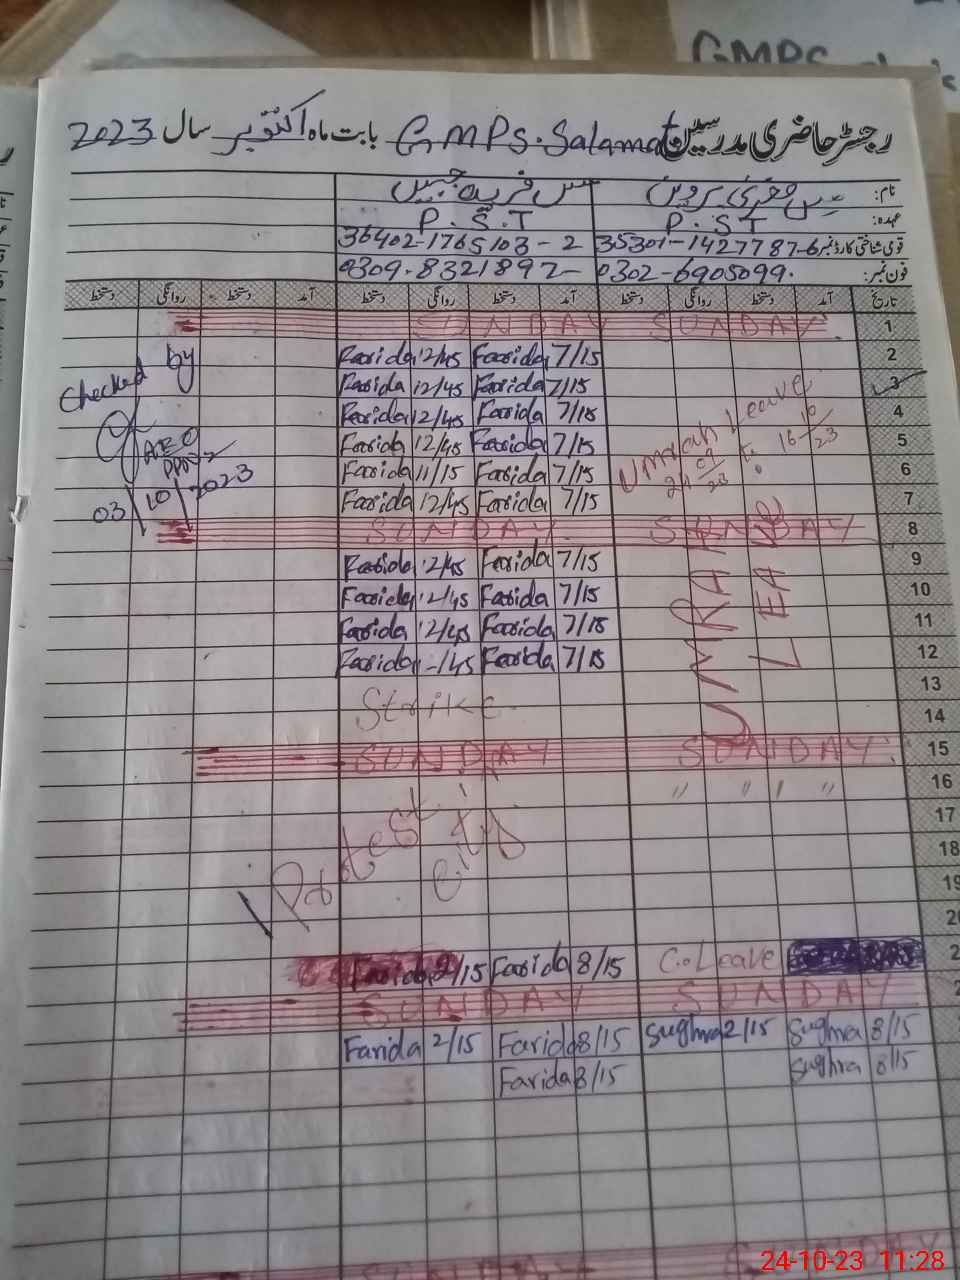 GMPS
رجسٹر حاضری مدرسین GMPS. Salamat بابت ماہ اکتوبر سال 2023
نام: مس صغریٰ پروین مس فریدہ جبیں
عہدہ: P.S.T P.S.T
قومی شناختی کارڈ نمبر 35301-1427787-6 36402-1765103-2
فون نمبر: 0302-6905099. 0309-8321897-
تاریخ آمد دستخط روانگی دستخط آمد دستخط روانگی دستخط آمد دستخط روانگی دستخط
SUNDAY SUNDAY 1
Farida 12/45 Farida 7/15 2
Farida 12/45 Farida 7/15 3
Farida 12/45 Farida 7/15 4
Farida 12/45 Farida 7/15 5
Farida 11/15 Farida 7/15 6
Farida 12/45 Farida 7/15 7
Checked by
AEO
03/10/2023
Umrah Leave
24/09/23 to 16/10/23
SUNDAY SUNDAY 8
Farida 12/45 Farida 7/15 9
Farida 12/45 Farida 7/15 10
Farida 12/45 Farida 7/15 11
Farida Farida 7/15 12
UMRAH
LEAVE
13
Strike 14
SUNDAY SUNDAY 15
〃 〃 〃 〃 16
17
Protest in city
18
19
20
Farida 2/15 Farida 8/15 C.Leave
SUNDAY SUNDAY
Farida 2/15 Farida 8/15 Sughra 2/15 Sughra 8/15
Farida 8/15 Sughra 8/15
SUNDAY
24-10-23 11:28